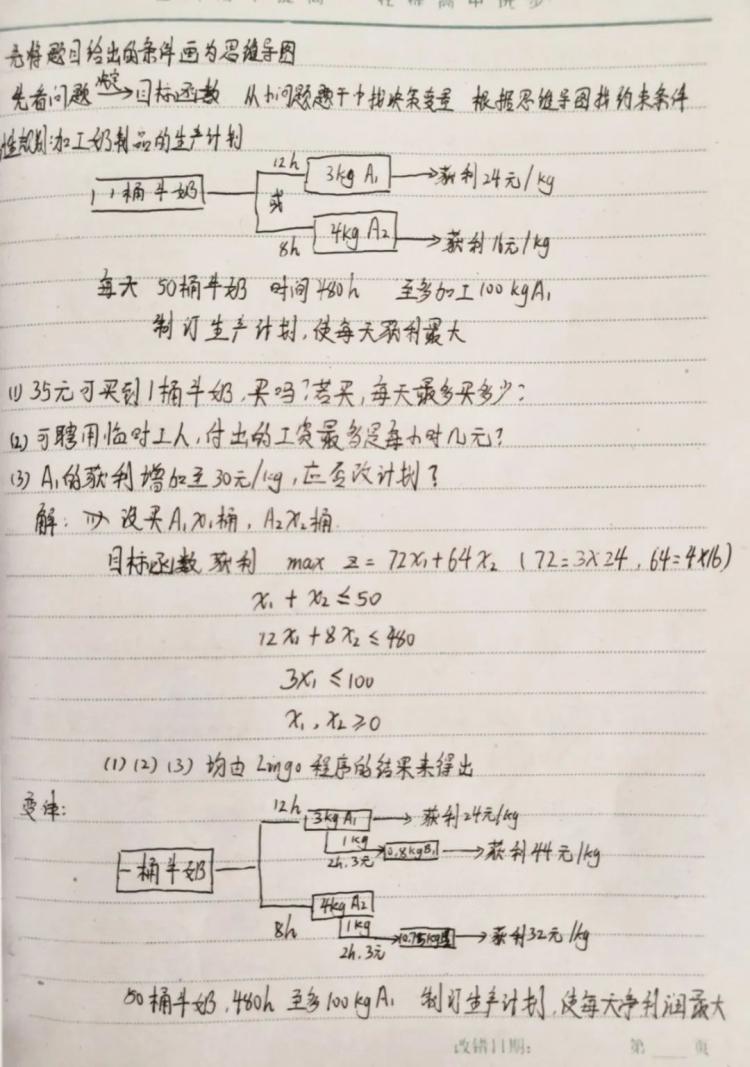 先将题目给出的条件画为思维导图
先看问题 决定→ 目标函数 从小问题题干中找决策变量 根据思维导图找约束条件
性规划:加工奶制品的生产计划
12h 3kg A₁ → 获利24元/kg
1桶牛奶 或
8h 4kg A₂ → 获利16元/kg
每天 50桶牛奶 时间480h 至多加工100kgA₁
制订生产计划,使每天获利最大
(1) 35元可买到1桶牛奶,买吗?若买,每天最多买多少?
(2) 可聘用临时工人,付出的工资最多是每小时几元?
(3) A₁的获利增加至30元/kg,应否改计划?
解: 设买A₁x₁桶,A₂x₂桶.
目标函数 获利 max z = 72x₁+64x₂ (72=3×24,64=4×16)
x₁ + x₂ ≤ 50
12x₁+8x₂ ≤ 480
3x₁ ≤ 100
x₁, x₂ ≥ 0
(1)(2)(3) 均由 Lingo 程序的结果来得出
变种:
12h 3kg A₁ → 获利24元/kg
1kg 2h.3元 0.8kgB₁ → 获利44元/kg
一桶牛奶
8h 4kg A₂
1kg 2h.3元 → 获利32元/kg
50桶牛奶,480h 至多100kgA₁ 制订生产计划,使每天净利润最大
改错日期: 第 页